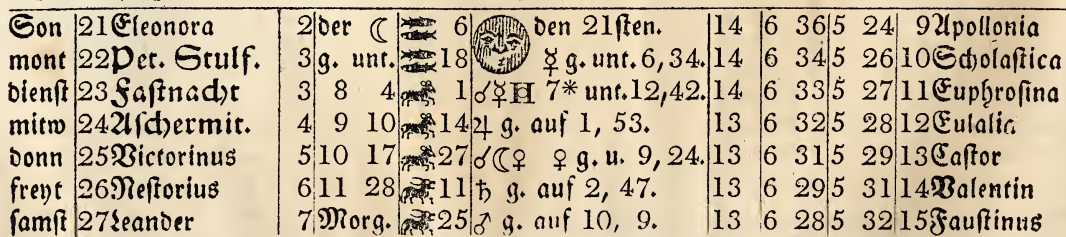 Son 21 Eleonora 2 der ☾ ♓ 6 den 21ſten. 14 6 36 5 24 9 Apollonia
mont 22 Pet. Stulf. 3 g. unt. ♓ 18 ☿ g. unt. 6, 34. 14 6 34 5 26 10 Scholaſtica
dienſt 23 Faſtnacht 3 8 4 ♈ 1 ☌ ☿ ♅ 7* unt. 12, 42. 14 6 33 5 27 11 Euphroſina
mitw 24 Aſchermit. 4 9 10 ♈ 14 ♃ g. auf 1, 53. 13 6 32 5 28 12 Eulalia
donn 25 Victorinus 5 10 17 ♈ 27 ☌ ☾ ♀ ♀ g. u. 9, 24. 13 6 31 5 29 13 Caſtor
freyt 26 Neſtorius 6 11 28 ♉ 11 ♄ g. auf 2, 47. 13 6 29 5 31 14 Valentin
ſamſt 27 Leander 7 Morg. ♉ 25 ♂ g. auf 10, 9. 13 6 28 5 32 15 Fauſtinus